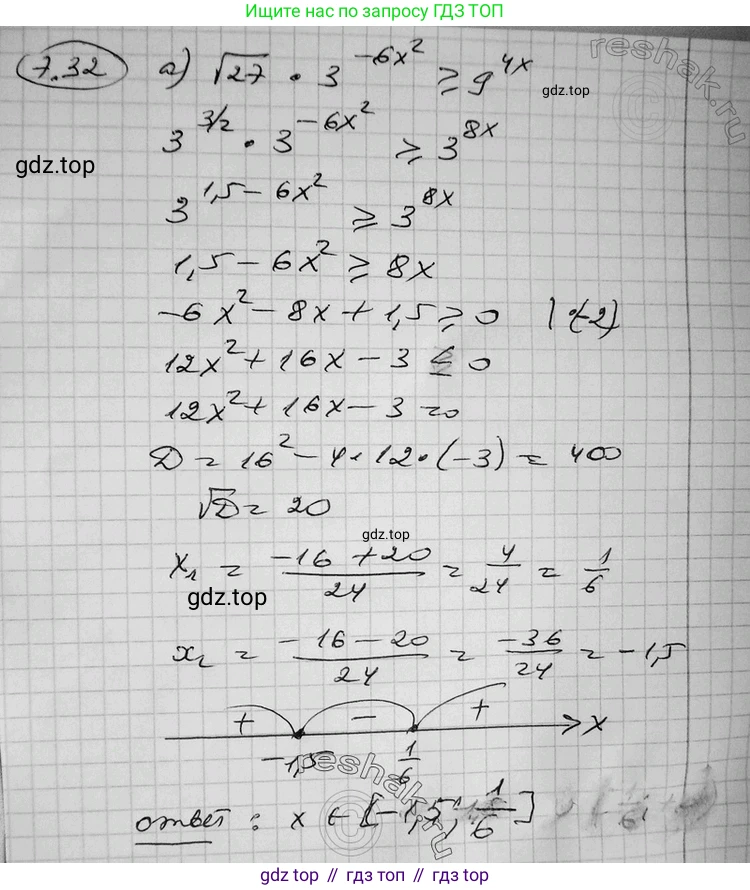 Ищите нас по запросу ГДЗ ТОП
7.32 а) √27 · 3^(-6x²) ≥ 9^(4x)
gdz.top
3^(3/2) · 3^(-6x²) ≥ 3^(8x)
gdz.top
3^(1,5 - 6x²) ≥ 3^(8x)
1,5 - 6x² ≥ 8x
-6x² - 8x + 1,5 ≥ 0 | ·(-2)
12x² + 16x - 3 ≤ 0
12x² + 16x - 3 = 0
D = 16² - 4 · 12 · (-3) = 400
√D = 20
gdz.top
x₁ = (-16 + 20)/24 = 4/24 = 1/6
gdz.top
x₂ = (-16 - 20)/24 = -36/24 = -1,5
+ - + x
-1,5 1/6
ответ: x ∈ [-1,5; 1/6]
reshak.ru
reshak.ru
gdz.top // гдз.топ // gdz.top // гдз.топ